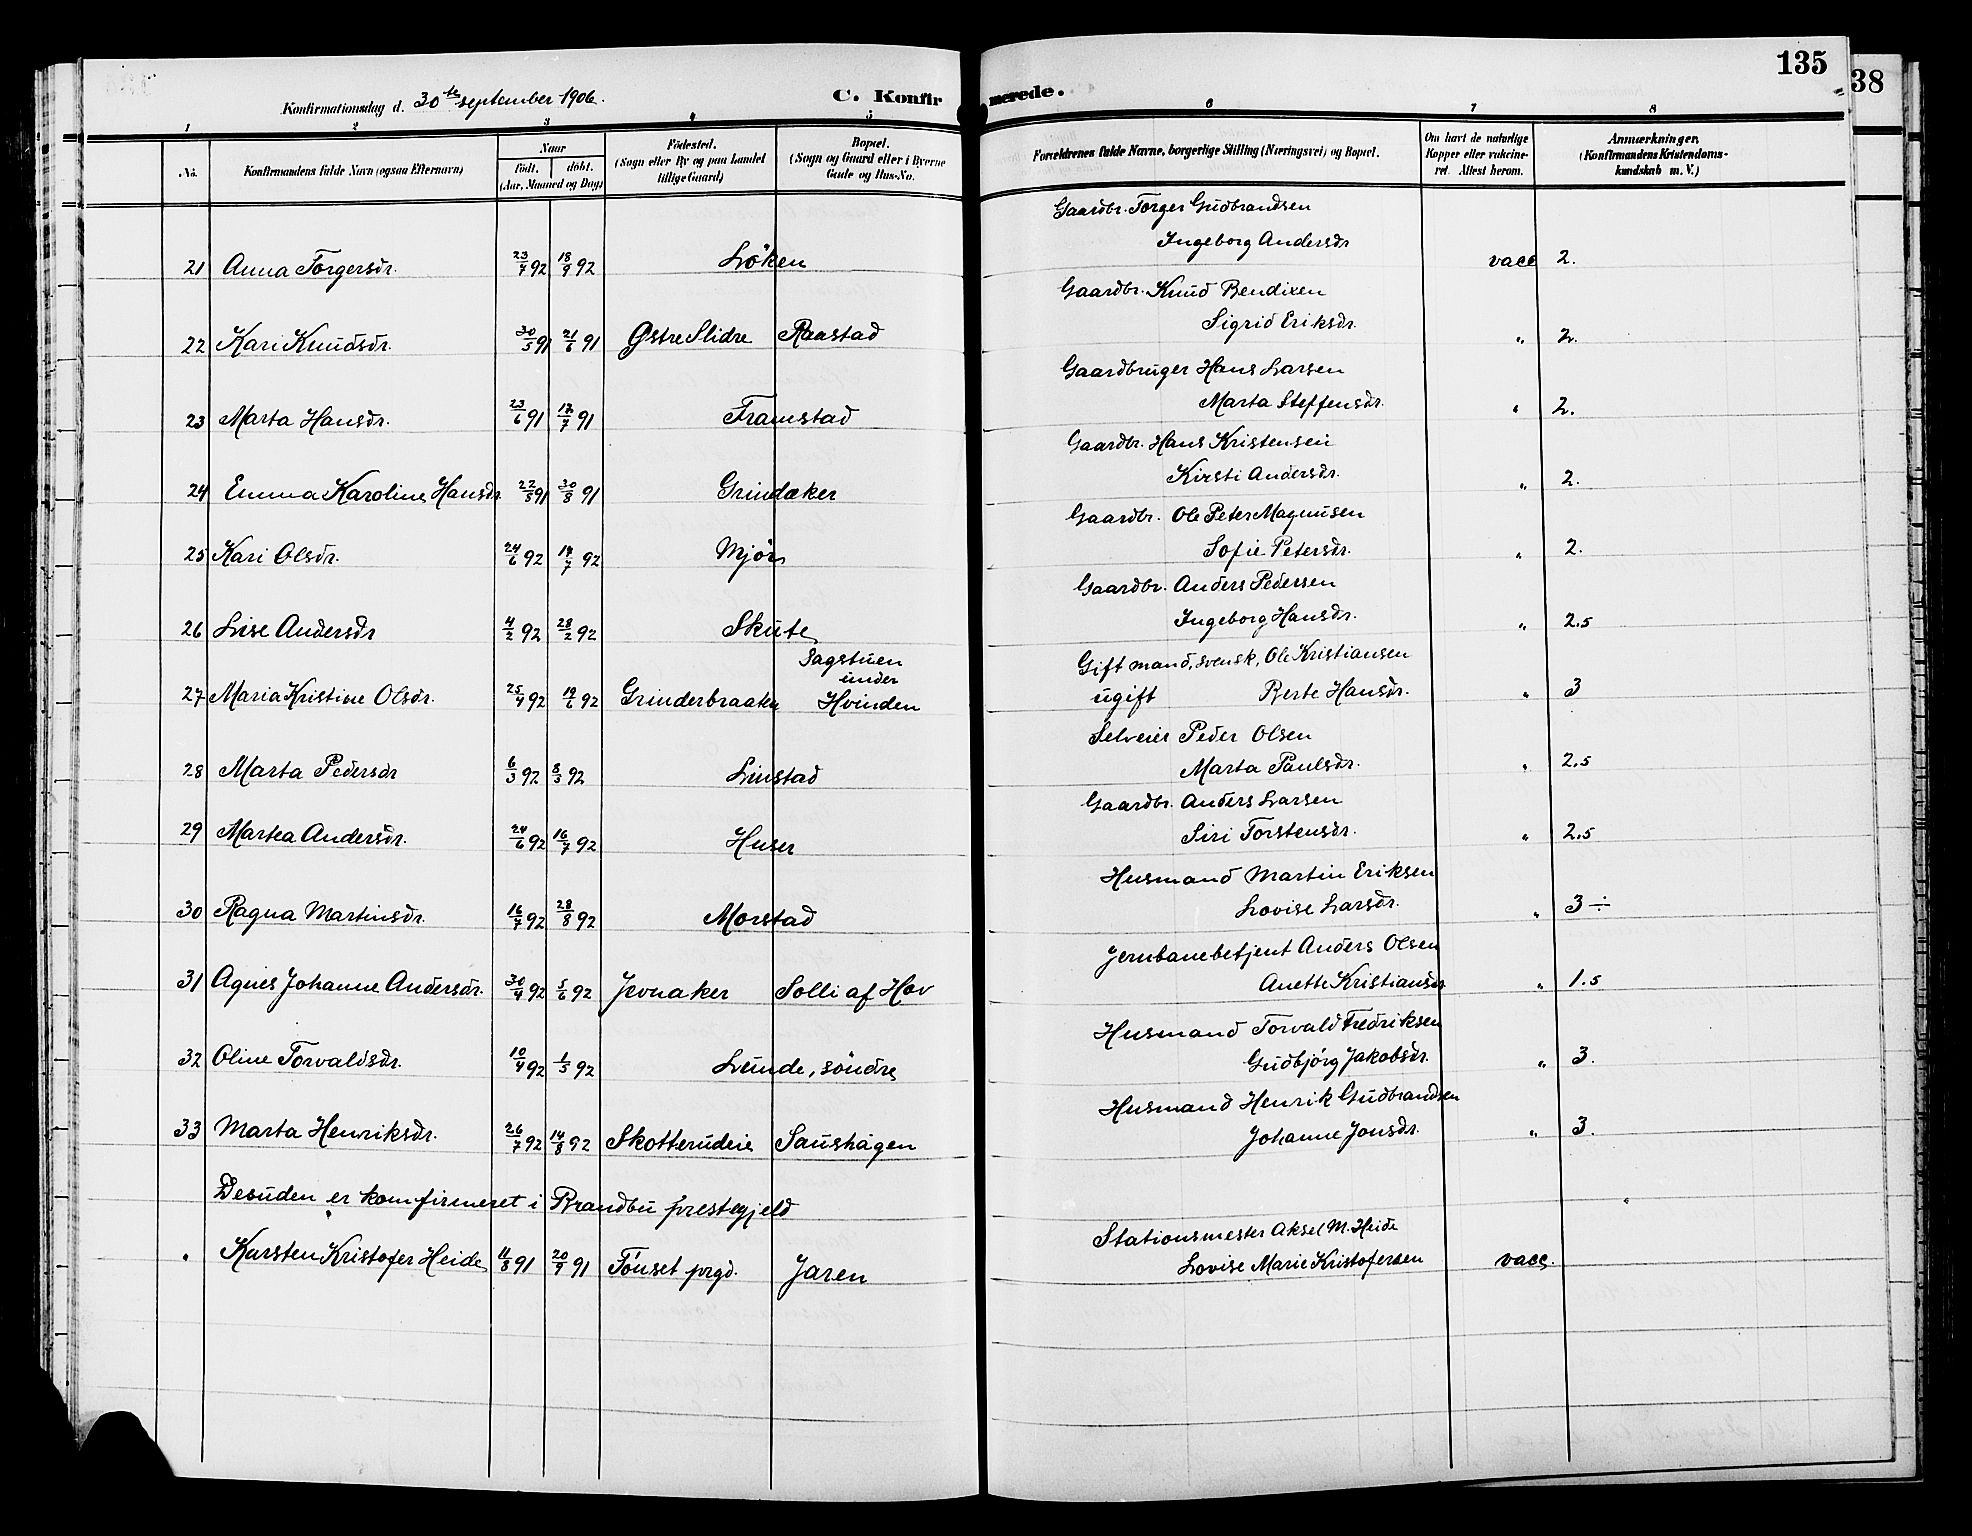 135
38
Konfirmationsdag d. 30te september 1906.
C. Konfirmerede.
1 2 3 4 5 6 7 8
No.
Konfirmandens fulde Navn (ogsaa Efternavn)
Naar
født. døbt.
(Aar, Maaned og Dag)
Fødested.
(Sogn eller By og paa Landet
tillige Gaard)
Bopæl.
(Sogn og Gaard eller i Byerne
Gade og Hus-No.
Forældrenes fulde Navne, borgerlige Stilling (Næringsvei) og Bopæl.
Om havt de naturlige
Kopper eller vakcine-
ret. Attest herom.
Anmærkninger.
(Konfirmandens Kristendoms-
kundskab m. V.)
Gaardbr. Torger Gudbrandsen
Ingeborg Andersdr
21 Anna Torgersdr. 23/7 92 18/9 92 Löken vacc 2.
Gaardbr. Knud Bendixen
Sigrid Eriksdr.
22 Kari Knudsdr. 30/5 91 21/6 91 Østre Slidre Raastad " 2.
Gaardbruger Hans Larsen
Marta Steffensdr.
23 Marta Hansdr. 23/6 91 12/7 91 Framstad " 2.
Gaardbr. Hans Kristensen
Kirsti Andersdr.
24 Emma Karoline Hansdr 22/5 91 30/8 91 Grindaker " 2.
Gaardbr. Ole Peter Magnusen
Sofie Petersdr.
25 Kari Olsdr. 24/6 92 17/7 92 Mjör " 2.
Gaardbr. Anders Pedersen
Ingeborg Hansdr.
26 Lise Andersdr 4/2 92 28/2 92 Skute " 2.5
Gift mand, svensk, Ole Kristiansen
ugift Berte Hansdr.
Sagstuen
under
27 Maria Kristine Olsdr. 25/4 92 19/6 92 Grinderbraaten Hvinden " 3
Selveier Peder Olsen
Marta Paulsdr.
28 Marta Pedersdr 6/3 92 8/3 92 Linstad " 2.5
Gaardbr. Anders Larsen
Siri Torstensdr.
29 Martea Andersdr. 24/6 92 16/7 92 Huser " 2.5
Husmand Martin Eriksen
Lovise Larsdr.
30 Ragna Martinsdr. 16/7 92 28/8 92 Morstad " 3 ÷
Jernbanebetjent Anders Olsen
Anette Kristiansdr
31 Agnes Johanne Andersdr. 30/4 92 5/6 92 Jevnaker Solli af Hov " 1.5
Husmand Torvald Fredriksen
Gudbjørg Jakobsdr.
32 Oline Torvaldsdr. 10/4 92 1/5 92 Lunde, söndre " 3.
Husmand Henrik Gudbrandsen
Johanne Jonsdr.
33 Marta Henriksdr. 26/7 92 14/8 92 Skotterudeie Saushagen " 3.
Desuden er komfirmeret i Brandbu prestegjeld
Stationsmester Aksel M. Heide
Lovise Marie Kristofersen
" Karsten Kristofer Heide 11/8 91 20/9 91 Tönset prgd. Jaren vacc.